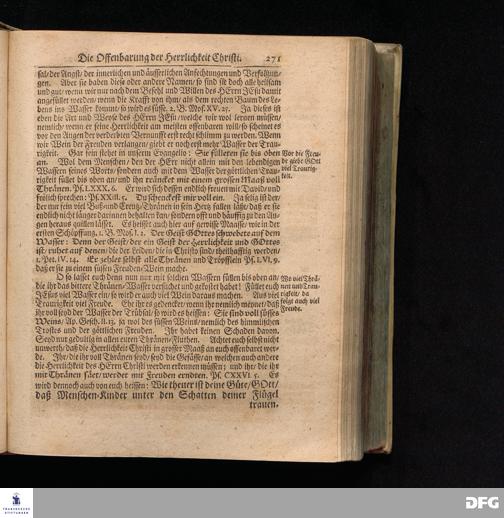 Die Offenbarung der Herrlichkeit Christi. 271
sal/ der Angst/ der innerlichen und äusserlichen Anfechtungen und Verfolgun-
gen. Aber sie haben diese oder andere Namen/ so sind sie doch alle heilsam
und gut/ wenn wir nur nach dem Befehl und Willen des HErrn JEsu damit
angefüllet werden/ wenn die Krafft von ihm/ als dem rechten Baum des Le-
bens ins Wasser kommt/ so wird es süsse. 2. B. Mos. XV. 25. Ja dieses ist
eben die Art und Weyse des HErrn JEsu/ welche wir wol lernen müssen/
nemlich/ wenn er seine Herrlichkeit am meisten offenbaren will/ so scheinet es
vor den Augen der verderbten Vernunfft erst recht schlimm zu werden. Wenn
wir Wein der Freuden verlangen/ giebt er noch erst mehr Wasser der Trau-
rigkeit. Gar fein stehet in unserm Evangelio: Sie fülleten sie bis oben
an. Wol dem Menschen/ den der HErr nicht allein mit den lebendigen
Wassern seines Worts/ sondern auch mit dem Wasser der göttlichen Trau-
rigkeit füllet bis oben an/ und ihn träncket mit einem grossen Maaß voll
Thränen. Ps. LXXX. 6. Er wird sich dessen endlich freuen mit David/ und
frölich sprechen: Ps. XXIII. 5. Du schenckest mir voll ein. Ja selig ist der/
der nur fein viel Buß- und Creutz-Thränen in sein Hertz fallen läßt/ daß er sie
endlich nicht länger darinnen behalten kan/ sondern offt und häuffig zu den Au-
gen heraus quillen lässet. Es heisset auch hier auf gewisse Maasse/ wie in der
ersten Schöpffung. 1. B. Mos. I. 2. Der Geist GOttes schwebete auf dem
Wasser: Denn der Geist/ der ein Geist der Herrlichkeit und GOttes
ist/ ruhet auf denen/ die der Leiden/ die in Christo sind/ theilhafftig werden/
1. Pet. IV. 14. Er zehlet selbst alle Thränen und Tröpfflein Ps. LVI. 9.
daß er sie zu einem süssen Freuden-Wein macht.
O so lasset euch denn nun nur mit solchen Wassern füllen bis oben an/
die ihr das bittere Thränen-Wasser versuchet und gekostet habet! Füllet euch
JEsus viel Wasser ein/ so wird er auch viel Wein daraus machen. Aus viel
Traurigkeit viel Freude. Ehe ihr es gedencket/ wenn ihr nemlich meynet/ daß
ihr voll seyd der Wasser der Trübsal/ so wird es heissen: Sie sind voll süsses
Weins/ Ap. Gesch. II. 13. ja wol des süssen Weins/ nemlich des himmlischen
Trostes und der göttlichen Freuden. Ihr habet keinen Schaden davon.
Seyd nur gedultig in allen euren Thränen-Fluthen. Achtet euch selbst nicht
unwerth/ daß die Herrlichkeit Christi in grosser Maaß an euch offenbaret wer-
de. Ihr/ die ihr voll Thränen seyd/ seyd die Gefässe/ an welchen auch andere
die Herrlichkeit des HErrn Christi werden erkennen müssen; und ihr/ die ihr
mit Thränen säet/ werdet mit Freuden erndten. Ps. CXXVI. 5. Es
wird dennoch auch von euch heissen: Wie theuer ist deine Güte/ GOtt/
daß Menschen-Kinder unter den Schatten deiner Flügel
trauen.
Vor die Freu-
de giebt GOtt
viel Traurig-
keit.
Wo viel Thrä-
nen und Trau-
rigkeit/ da
folgt auch viel
Freude.
FRANCKESCHE
STIFTUNGEN
DFG